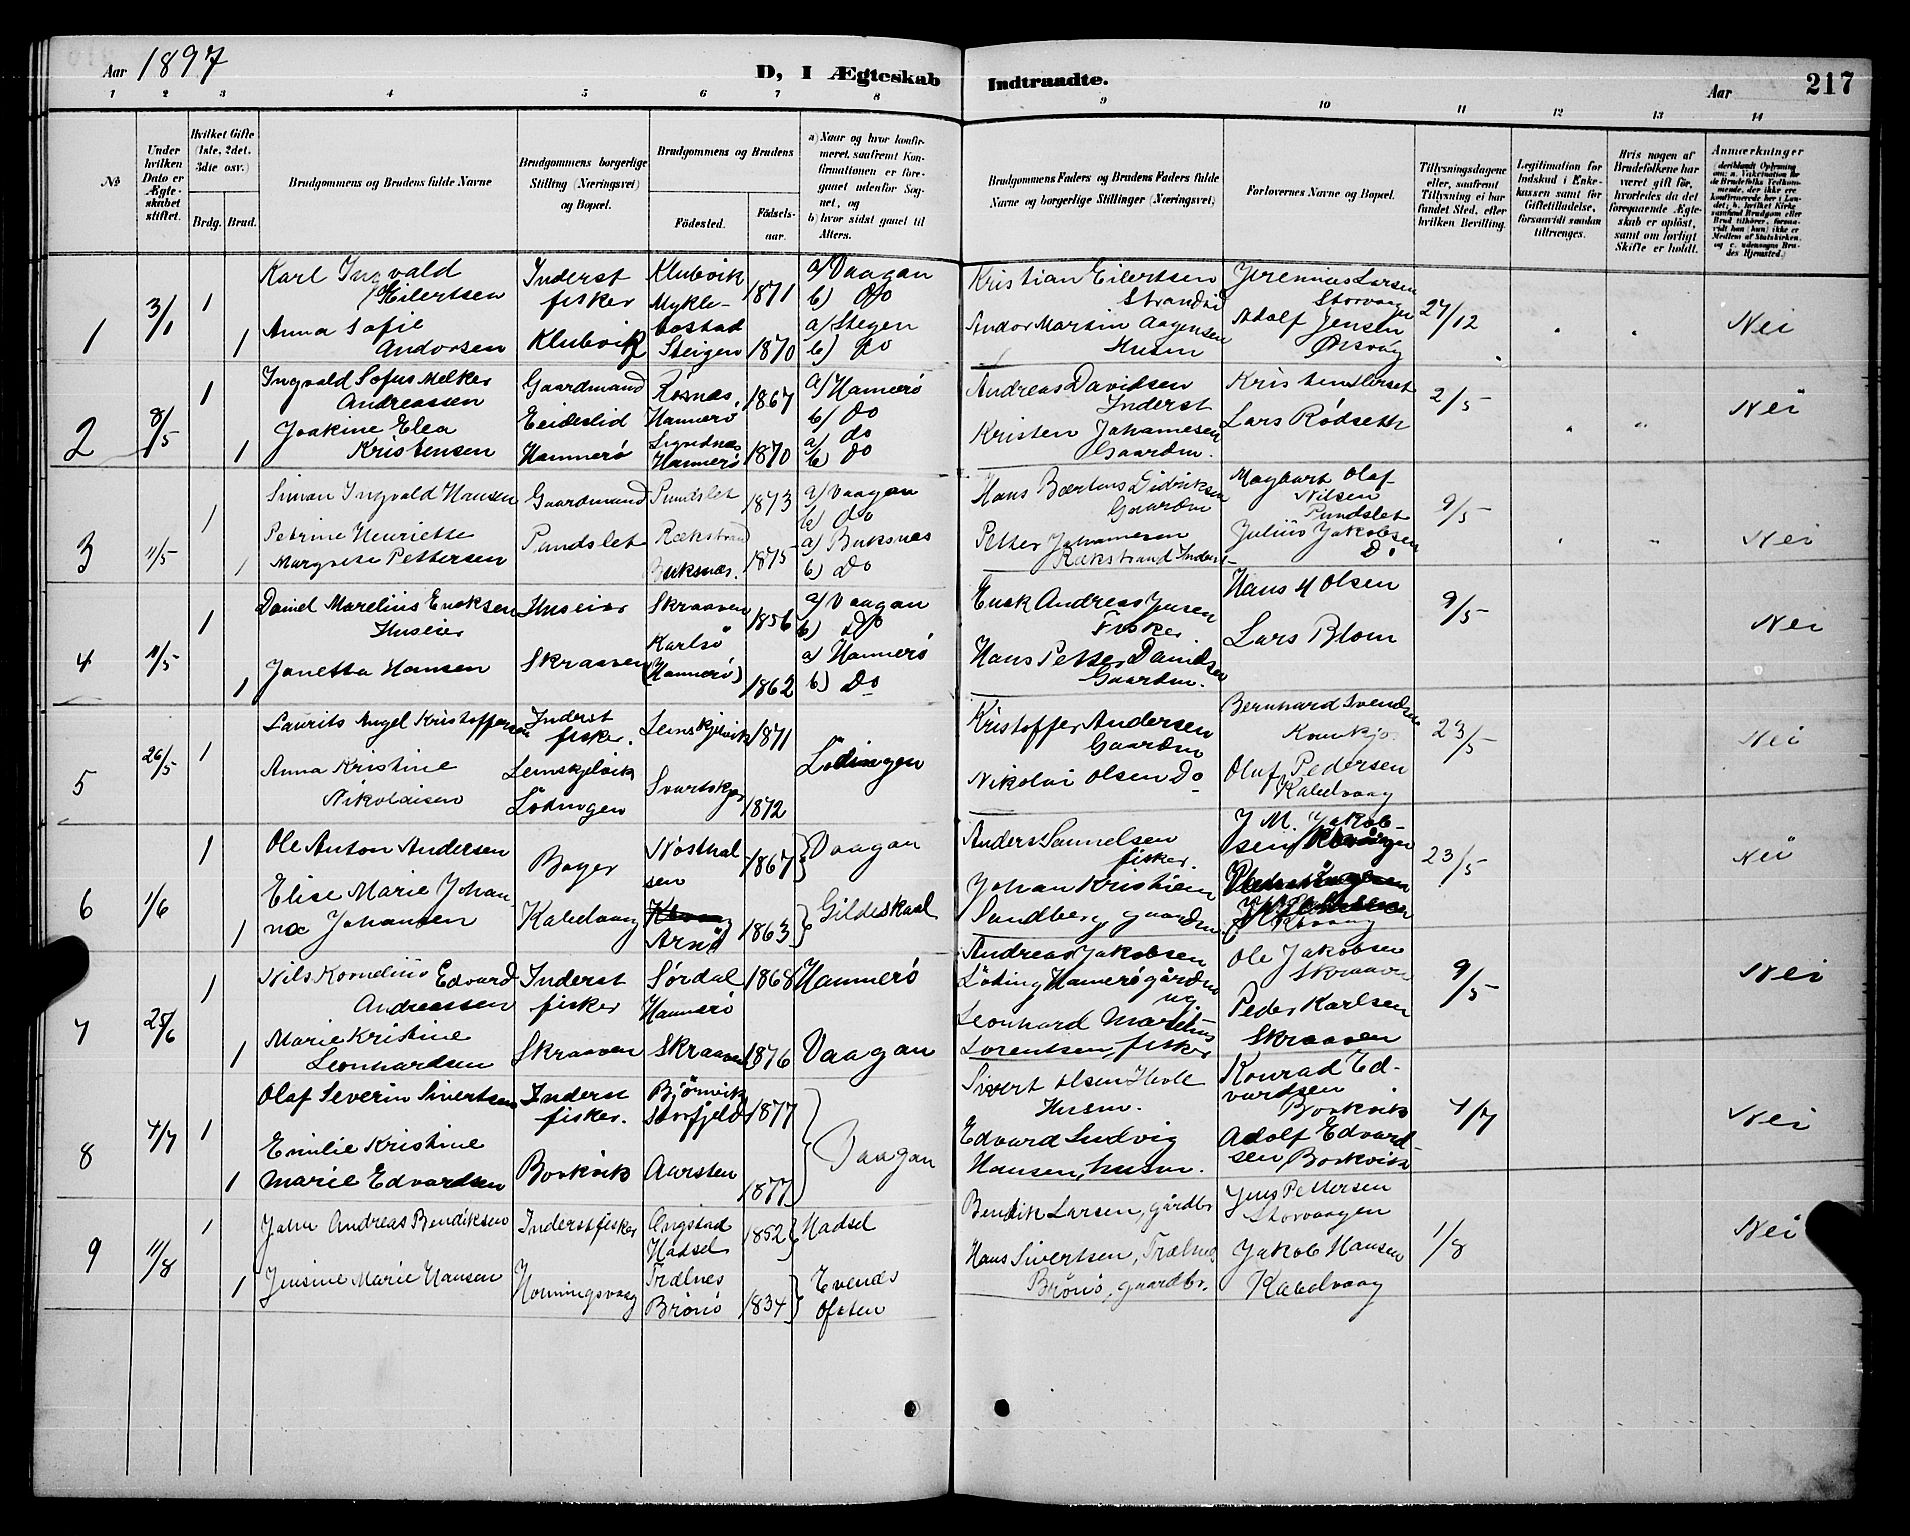 Aar 1897
D, I Ægteskab
Indtraadte.
Aar
217
1 2 3 4 5 6 7 8 9 10 11 12 13 14
No
Under hvilken Dato er Ægteskabet stiftet.
Hvilket Gifte (1ste, 2det, 3die osv.)
Brdg. Brud.
Brudgommens og Brudens fulde Navne
Brudgommens borgerlige Stilling (Næringsvei) og Bopæl.
Brudgommens og Brudens
Fødested.
Fødselsaar.
a) Naar og hvor konfirmeret, saafremt Konfirmationen er foregaaet udenfor Sognet, og
b) hvor sidst gaaet til Alters.
Brudgommens Faders og Brudens Faders fulde Navne og borgerlige Stillinger (Næringsvei)
Forlovernes Navne og Bopæl.
Tillysningsdagene eller, saafremt Tillysning ei har fundet Sted, efter hvilken Bevilling.
Legitimation for Indskud i Enkekassen samt for Giftetilladelse, forsaavidt saadan tiltrænges.
Hvis nogen af Brudefolkene har været gift før, hvorledes da det foregaaende Ægteskab er opløst, samt om lovligt Skifte er holdt.
Anmærkninger
1 3/1 1 Karl Ingvald Eilertsen
Inderst fisker
Klubvik Mykle-bostad 1871
a) Vaagan
b) Do
Kristian Eilertsen Strandsid
Jeremias Larsen Storvaagen
27/12
Nei
1 Anna Sofie Andorsen
Klubvik
Steigen 1870
a) Stegen
b) Do
Andor Martin Aagensen Husm
Adolf Jensen Ørsvåg
2 8/5 1 Ingvald Sofus Melker Andreassen
Gaardmand
Rosnæs, Hammerö 1867
a) Hamerö
b) Do
Andreas Davidsen Inderst
Kristen Ulvset
2/5
Nei
1 Joakine Elea Kristensen
Eideslid Hammerö
Hammerö 1870
a) do
b) Do
Kristen Johannesen Gaardm.
Lars Rødseth
3 11/5 1 Simon Ingvald Hansen
Gaardmand
Pundslet 1873
a) Vaagan
b) do
Hans Bærtens Didriksen Gaardm
Magbart Olaf Nilsen Pundslet
9/5
Nei
1 Petrine Henriette Margrete Pettersen
Pundslet
Rækstrand Buksnæs. 1875
a) Buksnæs
b) Do
Petter Johannesen Rækstrand Inderst
Julius Jakobsen Do
4 11/5 1 Daniel Marelius Enoksen Huseier
Huseier
Skraaven 1856
a) Vaagan
b) Do
Enok Andreas Jensen Fisker
Hans M Olsen
9/5
Nei
1 Janetta Hansen
Skraaven
Karlsö (Hammerö) 1862
a) Hammerö
b) Do
Hans Petter Danielsen Gaardm.
Lars Blom
5 26/5 1 Laurits Angel Kristoffersen
Inderst fisker.
Lemskjelvik 1871
Lödingen
Kristoffer Andersen Gaardm
Bernhard Svendsen
23/5
Nei
Anna Kristine Nikolaisen
Lemskjelvik Lödingen
1872
Nikolai Olsen Do
Oluf Pedersen Kabelvaag
6 1/6 1 Ole Anton Andersen
Bager
1867
Vaagan
Anders Samuelsen fisker.
J M. Jakobsen
23/5
Nei
1 Elise Marie Johanna Johansen
Kabelvaag
Arnö 1863
Gildeskaal
Johan Kristian Sandberg gaardm.
7 25/6 1 Nils Kornelius Edvard Andreassen
Inderst fisker
Sørdal Hammerö 1868
Hammerö
Andreas Jakobsen Löding Hamerö gårdm
Ole Jakobsen Skraaven
9/5
Nei
1 Marie Kristine Leonhardsen
Skraaven
Skraaven 1876
Vaagan
Leonhard Martinus Lorentsen, fisker
Peder Karlsen Skraaven
8 4/7 1 Olaf Severin Sivertsen
Inderst fisker.
Björnvik Storfjeld 1877
Vaagan
Sivert Olsen Husm.
Konrad Edvardsen Borkvik
4/7
Nei
1 Emilie Kristine Marie Edvardsen
Borkvik
Aarsten 1877
Edvard Ludvig Hansen, husm.
Adolf Edvardsen Borkvik
9 11/8 1 John Andreas Bendiksen
Inderst fisker
Engstad Hadsel 1852
Hadsel
Bendik Larsen, gårdbr
Jens Pettersen Storvaagen
1/8
Nei
1 Jensine Marie Hansen
Horningsvaag
Trælnes Brönö 1834
Evends Ofoten
Hans Sivertsen, Trælnes Brönö, gaardbr.
Jakob Hansen Kabelvaag